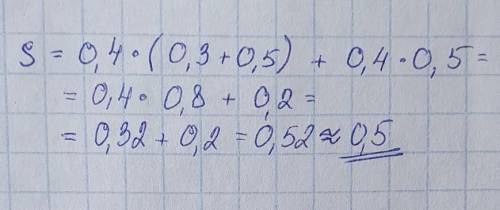 S = 0,4 · (0,3 + 0,5) + 0,4 · 0,5 =
= 0,4 · 0,8 + 0,2 =
= 0,32 + 0,2 = 0,52 ≈ 0,5